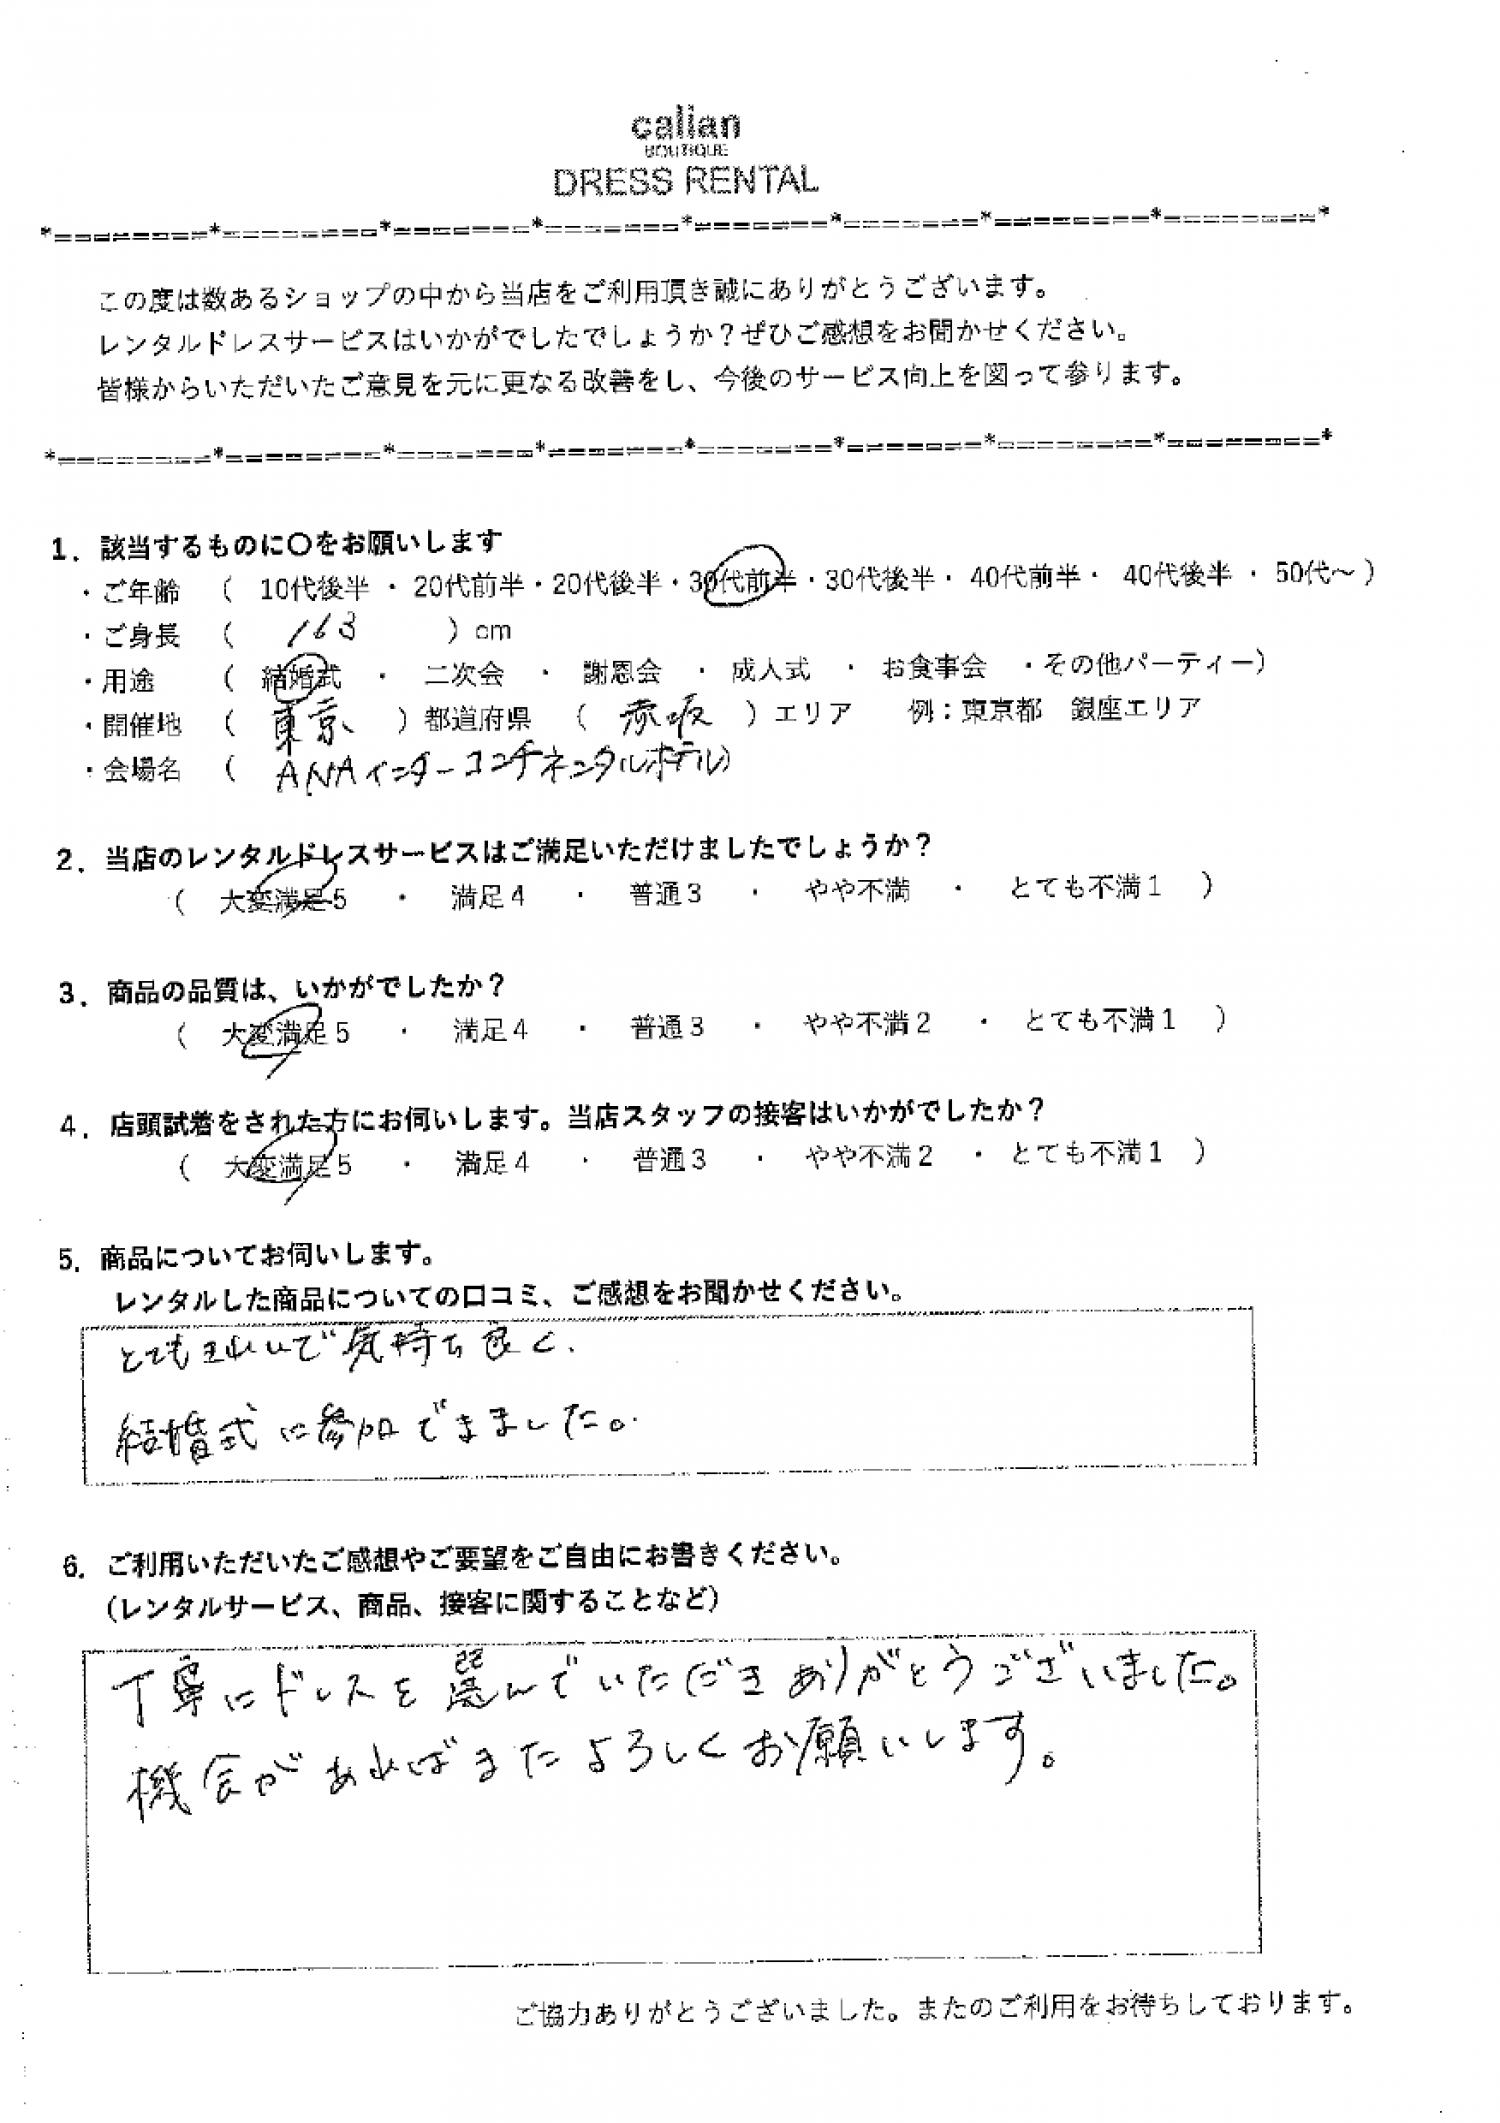 calian
BOUTIQUE
DRESS RENTAL
*========*========*=======*=======*=======*=======*========*========*
この度は数あるショップの中から当店をご利用頂き誠にありがとうございます。
レンタルドレスサービスはいかがでしたでしょうか？ぜひご感想をお聞かせください。
皆様からいただいたご意見を元に更なる改善をし、今後のサービス向上を図って参ります。
*========*========*=======*=======*=======*=======*========*========*
1．該当するものに〇をお願いします
・ご年齢 （ 10代後半 ・ 20代前半・20代後半・30代前半・30代後半・ 40代前半・ 40代後半 ・ 50代～ ）
・ご身長 （ 163 ）cm
・用途 （ 結婚式 ・ 二次会 ・ 謝恩会 ・ 成人式 ・ お食事会 ・その他パーティー）
・開催地 （ 東京 ）都道府県 （ 赤坂 ）エリア 例：東京都 銀座エリア
・会場名 （ ANAインターコンチネンタルホテル）
2．当店のレンタルドレスサービスはご満足いただけましたでしょうか？
（ 大変満足5 ・ 満足4 ・ 普通3 ・ やや不満 ・ とても不満1 ）
3．商品の品質は、いかがでしたか？
（ 大変満足5 ・ 満足4 ・ 普通3 ・ やや不満2 ・ とても不満1 ）
4．店頭試着をされた方にお伺いします。当店スタッフの接客はいかがでしたか？
（ 大変満足5 ・ 満足4 ・ 普通3 ・ やや不満2 ・ とても不満1 ）
5．商品についてお伺いします。
レンタルした商品についての口コミ、ご感想をお聞かせください。
とてもきれいで気持ち良く、
結婚式に参加できました。
6．ご利用いただいたご感想やご要望をご自由にお書きください。
（レンタルサービス、商品、接客に関することなど）
丁寧にドレスを選んでいただきありがとうございました。
機会があればまたよろしくお願いします。
ご協力ありがとうございました。またのご利用をお待ちしております。